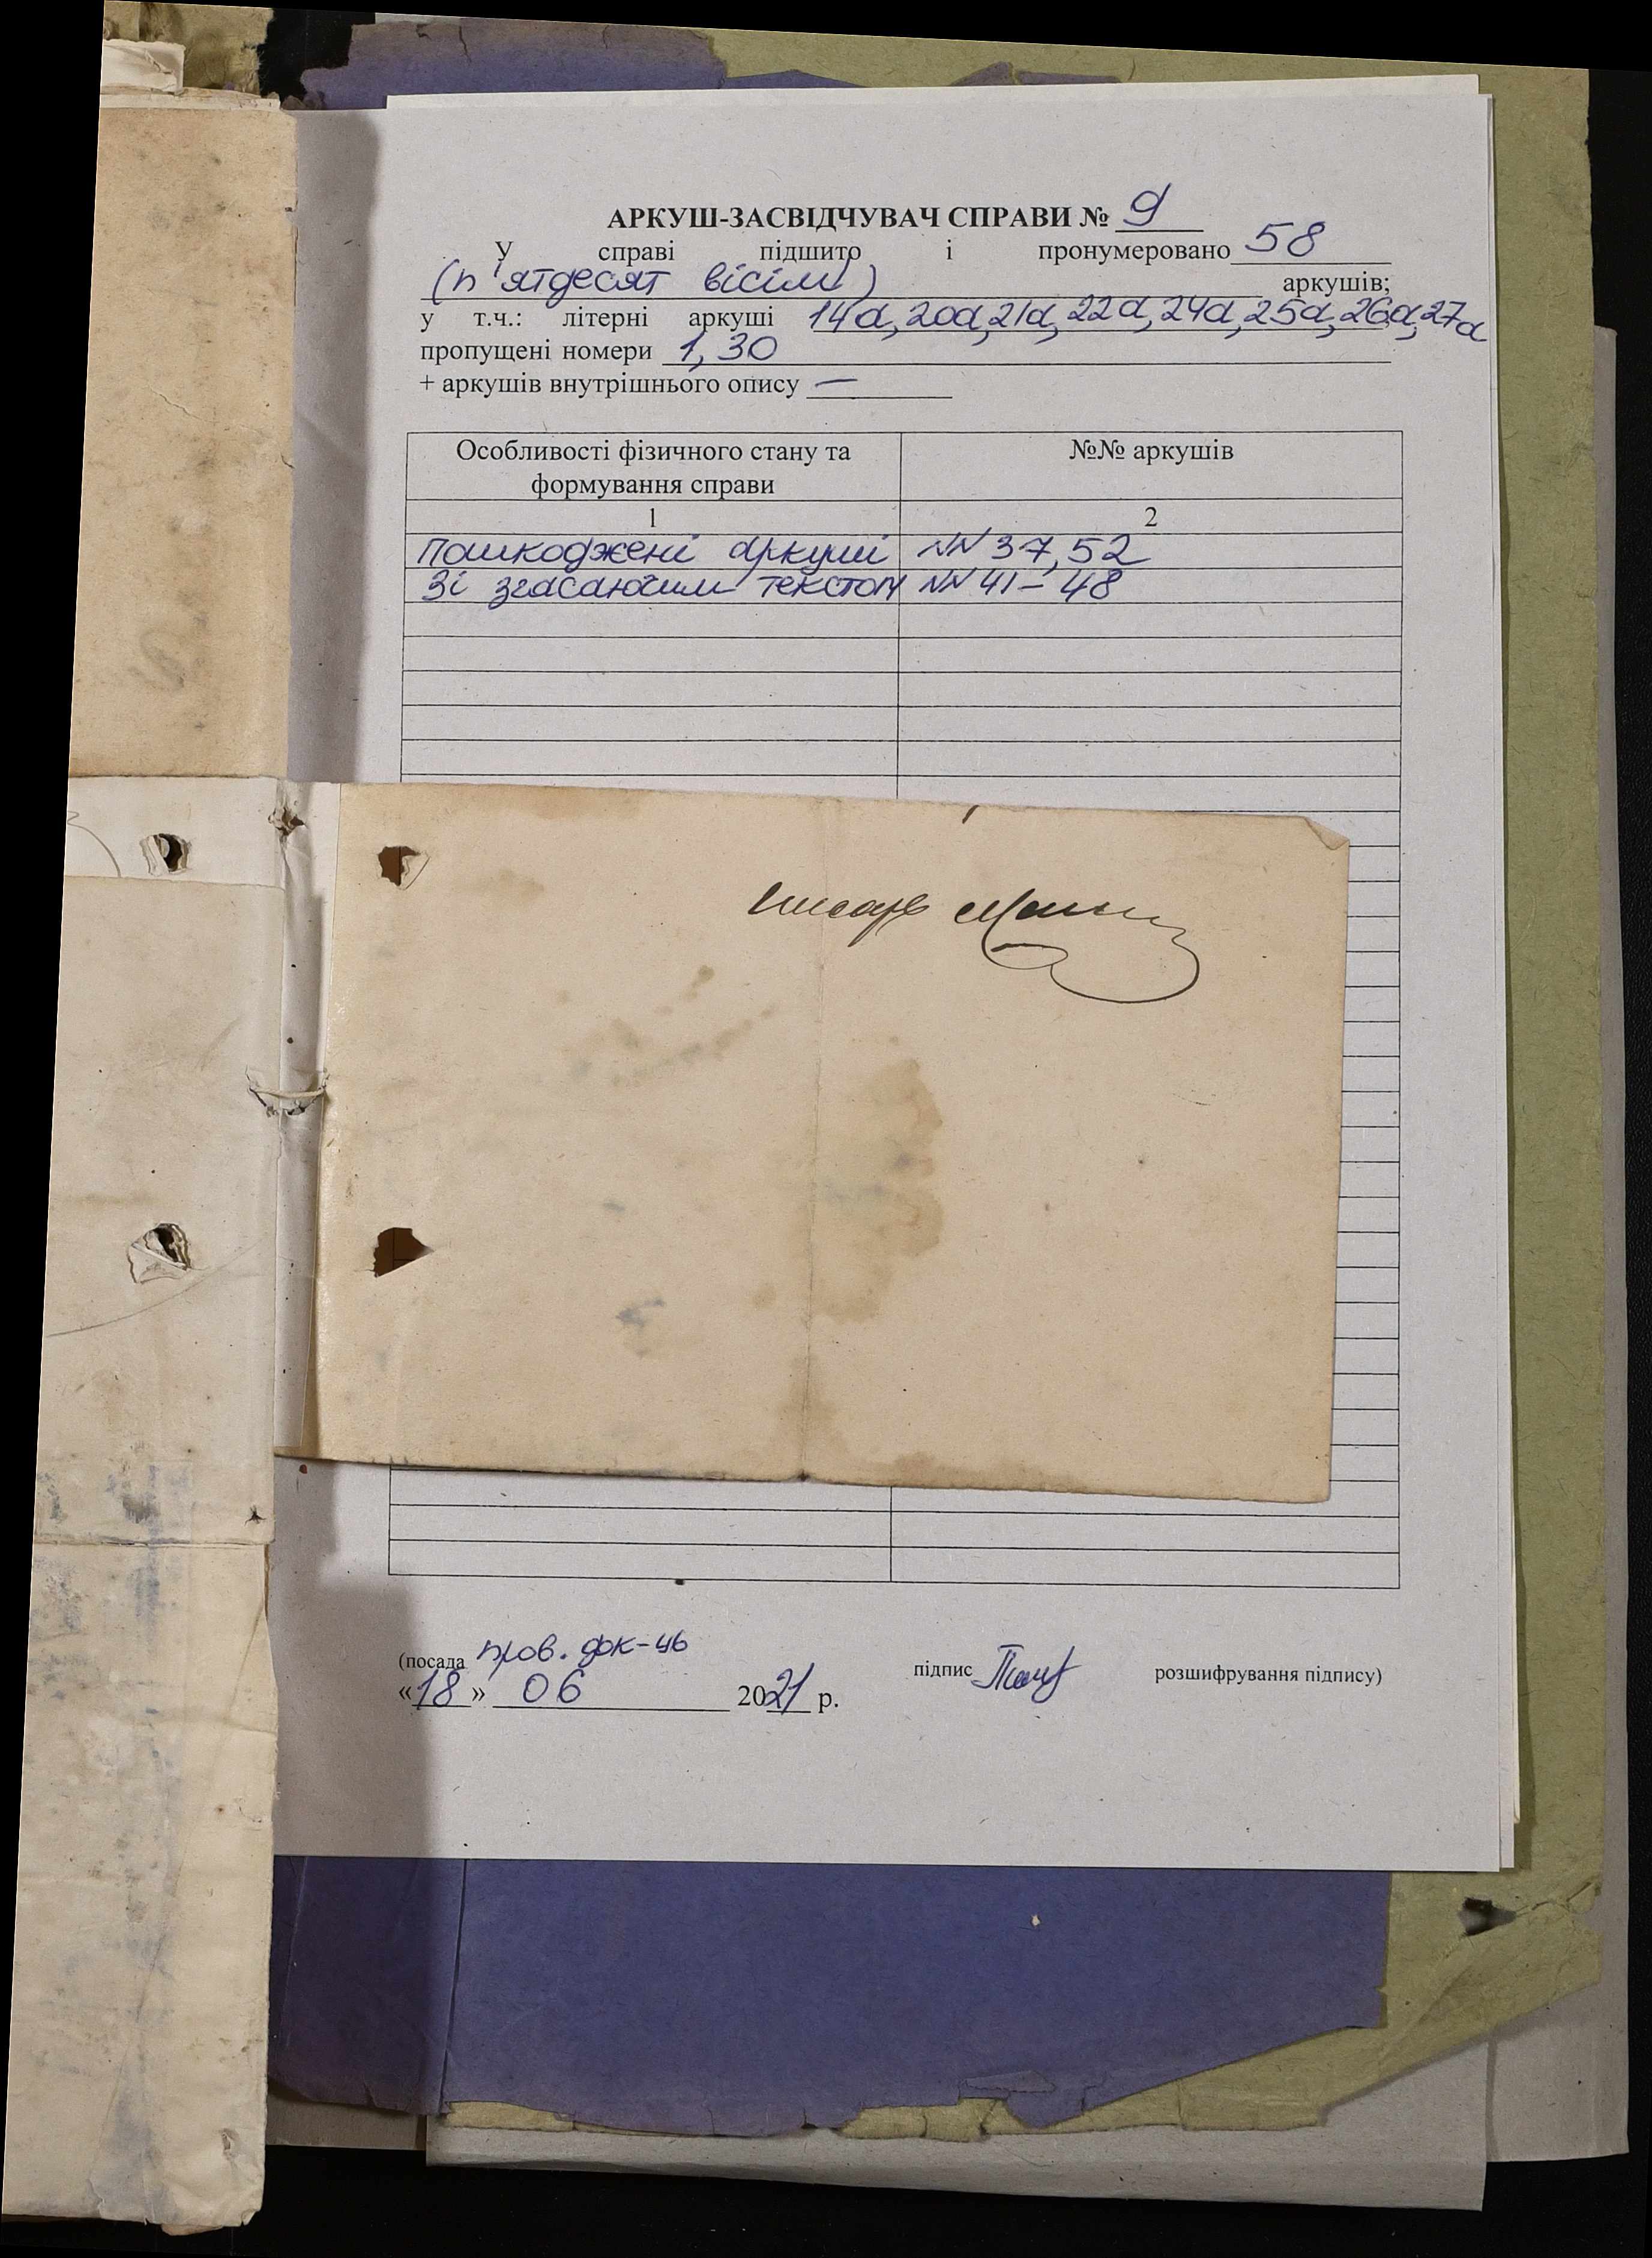 АРКУШ-ЗАСВІДЧУВАЧ СПРАВИ № 9
У справі підшито і пронумеровано 58
(п'ятдесят вісім) аркушів;
у т.ч.: літерні аркуші 14а, 20а, 21а, 22а, 24а, 25а, 26а, 27а
пропущені номери 1, 30
+ аркушів внутрішнього опису —
Особливості фізичного стану та формування справи
№№ аркушів
1 2
Пошкоджені аркуші NN 37, 52
Зі згасаючим текстом NN 41-48
писарь
(посада пров. док-ць підпис розшифрування підпису)
«18» 06 2021 р.